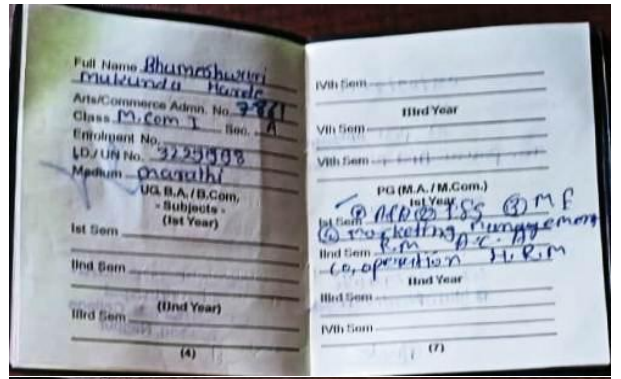 Full Name Bhumeshwari
Mukunda Harde
Arts/Commerce Admn. No. 7861
Class M.Com I Sec. A
Enrolment No.
I.D./ UN No. 3229998
Medium Marathi
UG B.A. / B.Com,
- Subjects -
(Ist Year)
Ist Sem
IInd Sem
(IInd Year)
IIIrd Sem
(4)
IVth Sem
IIIrd Year
Vth Sem
VIth Sem
PG (M.A. / M.Com.)
Ist Year
Ist Sem ③ M F
④ marketing management
IInd Sem R.M
co, operation H.R.M
IInd Year
IIIrd Sem
IVth Sem
(7)